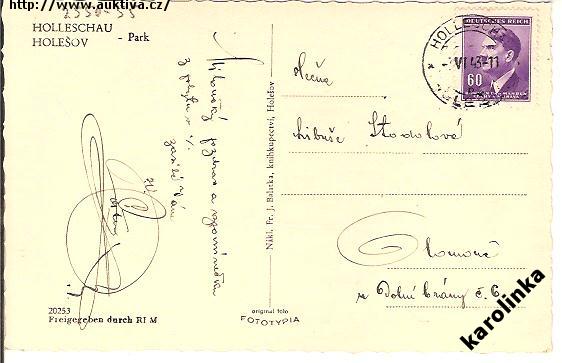 http://www.auktiva.cz/
2350-33
HOLLESCHAU
HOLEŠOV
- Park
HOLLESCHAU
VI 43-11
HOLEŠOV
DEUTSCHES REICH
60
Slečna
Libuše Stodolová
Olomouc
Dolní brány č. 6.
pozdrav a vzpomínečku
z pobytu v
zasílá Vám
Nákl. Fr. J. Balatka, knihkupectví, Holešov
20253
Freigegeben durch RLM
original foto
FOTOTYPIA
karolinka